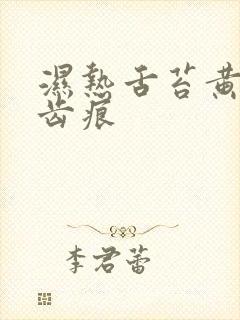 濕熱舌苔黃
齒痕
李君蕾